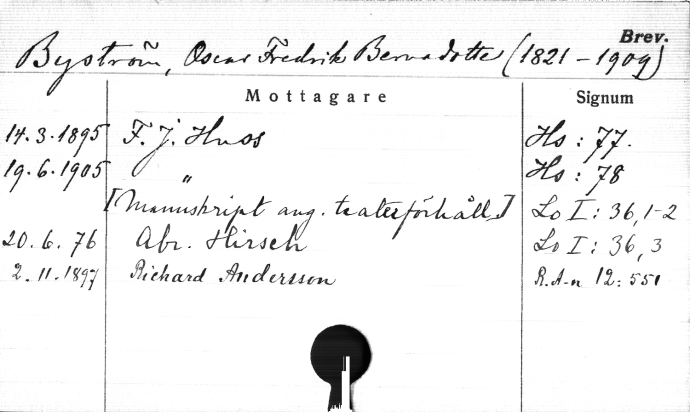 Brev.
Byström, Oscar Fredrik Bernadotte (1821-1909)
Mottagare Signum
14.3.1895 F. J. Huss Hs: 77.
19.6.1905 " Hs: 78
[Manuskript ang. teaterförhåll.] Lo I: 36,1-2
20.6.76 Abr. Hirsch Lo I: 36,3
2.11.1897 Richard Andersson R.A-n 12:551